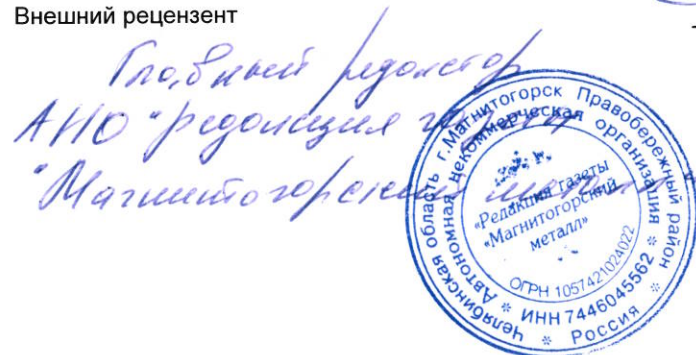 Внешний рецензент
Главный редактор
АНО "Редакция газеты
"Магнитогорский металл"
Челябинская область г.Магнитогорск Правобережный район
* Россия *
Автономная некоммерческая организация
* ИНН 7446045562 *
«Редакция газеты
«Магнитогорский
металл»
ОГРН 1057421024022